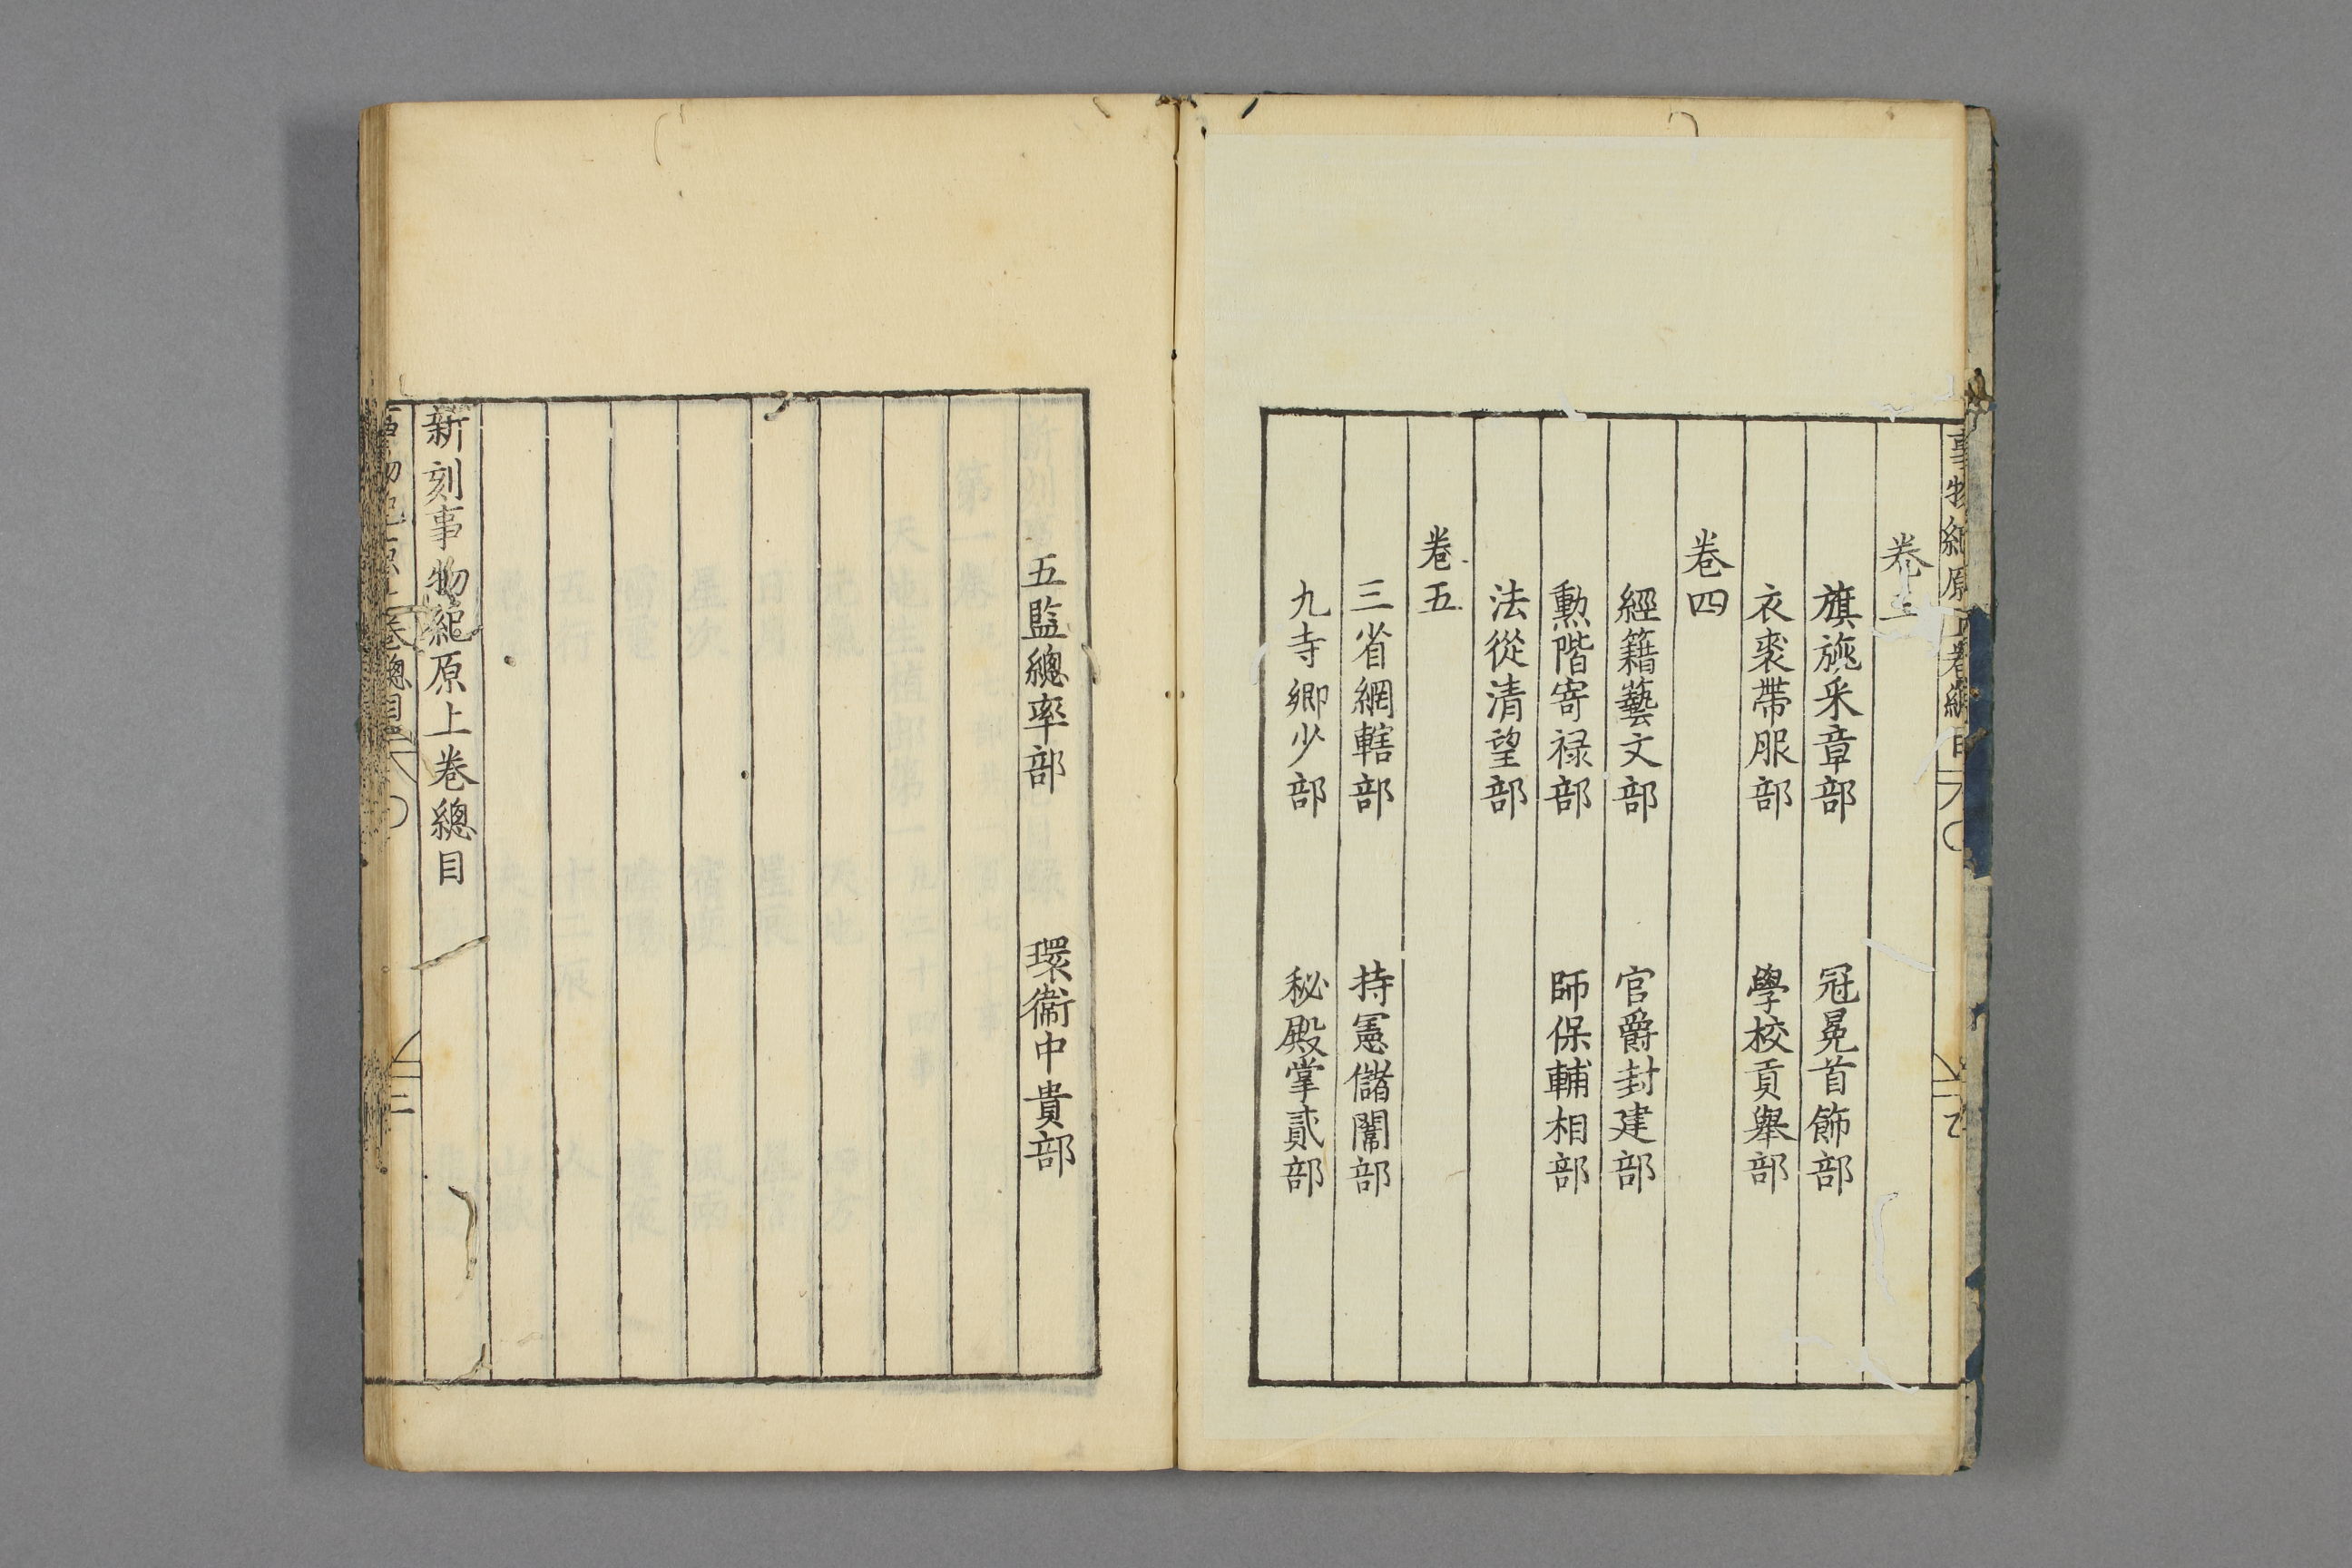 事物紀原上卷總目
卷三
旗旐采章部 冠冕首飾部
衣裘帶服部 學校貢舉部
卷四
經籍藝文部 官爵封建部
勲階寄禄部 師保輔相部
法從清望部
卷五
三省網轄部 持憲儲闈部
九寺卿少部 秘殿掌貳部
五監總率部 環衞中貴部
新刻事物紀原上卷總目